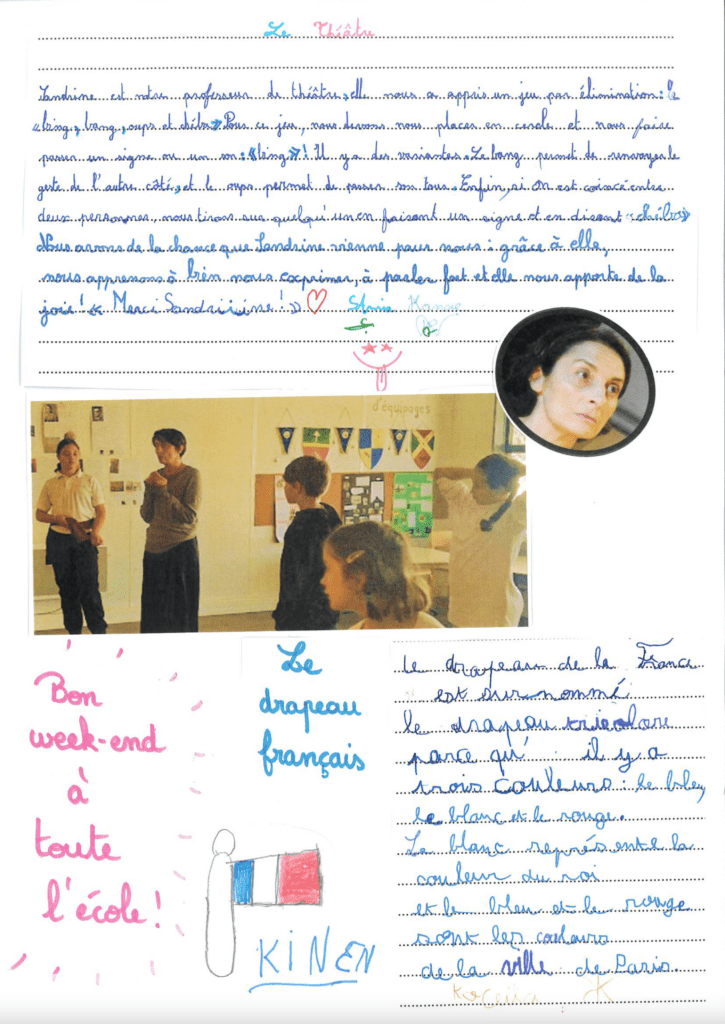 Le Théâtre
Sandrine est notre professeur de théâtre, elle nous a appris un jeu par élimination : le
«bing, bang, oups et chéba» Pour ce jeu, nous devons nous placer en cercle et nous faire
passer un signe ou un son : «bing»! Il y a des variantes. Le bang permet de renvoyer le
geste de l'autre côté, et le oups permet de passer son tour. Enfin, si on est coincé entre
deux personnes, nous tirons sur quelqu'un en faisant un signe et en disant «chéba»
Nous avons de la chance que Sandrine vienne pour nous : grâce à elle,
nous apprenons à bien nous exprimer, à parler fort et elle nous apporte de la
joie! « Merci Sandriiiine! »
d'équipages
Bon
week-end
à
toute
l'école!
Le
drapeau
français
KINEN
Le drapeau de la France
est surnommé
le drapeau tricolore
parce qu' il y a
trois couleurs : le bleu,
le blanc et le rouge.
Le blanc représente la
couleur du roi
et le bleu et le rouge
sont les couleurs
de la ville de Paris.
K